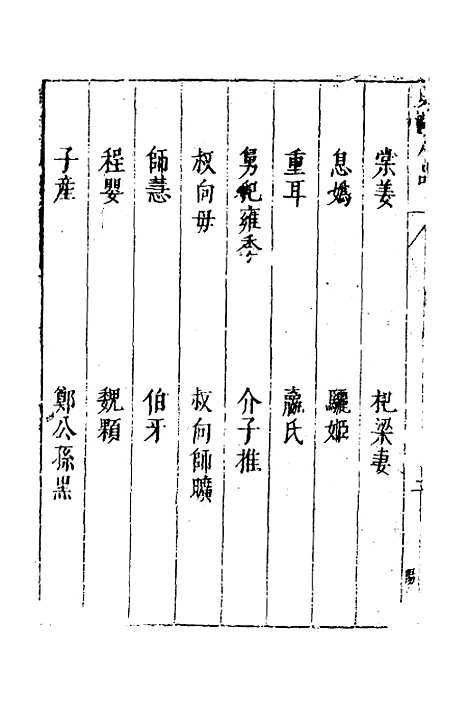 棠姜 杞梁妻
息媯 驪姬
重耳 嬴氏
舅犯雍季 介子推
叔向母 叔向師曠
師慧 伯牙
程嬰 魏顆
子產 鄭公孫黑